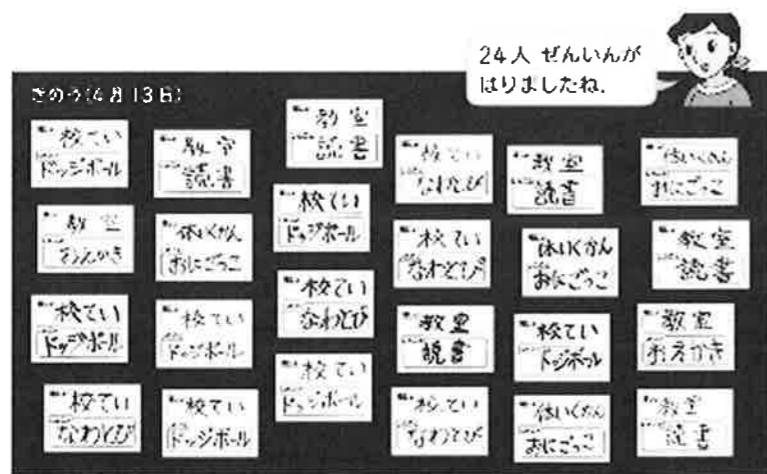 24人 ぜんいんが
はりましたね。
きのう(4月13日)
校てい
ドッジボール
教室
おえかき
校てい
ドッジボール
校てい
なわとび
教室
読書
体いくかん
おにごっこ
校てい
ドッジボール
校てい
ドッジボール
教室
読書
校てい
ドッジボール
校てい
なわとび
校てい
ドッジボール
校てい
なわとび
校てい
なわとび
教室
読書
校てい
なわとび
教室
読書
体いくかん
おにごっこ
校てい
ドッジボール
体いくかん
おにごっこ
体いくかん
おにごっこ
教室
読書
教室
おえかき
教室
読書